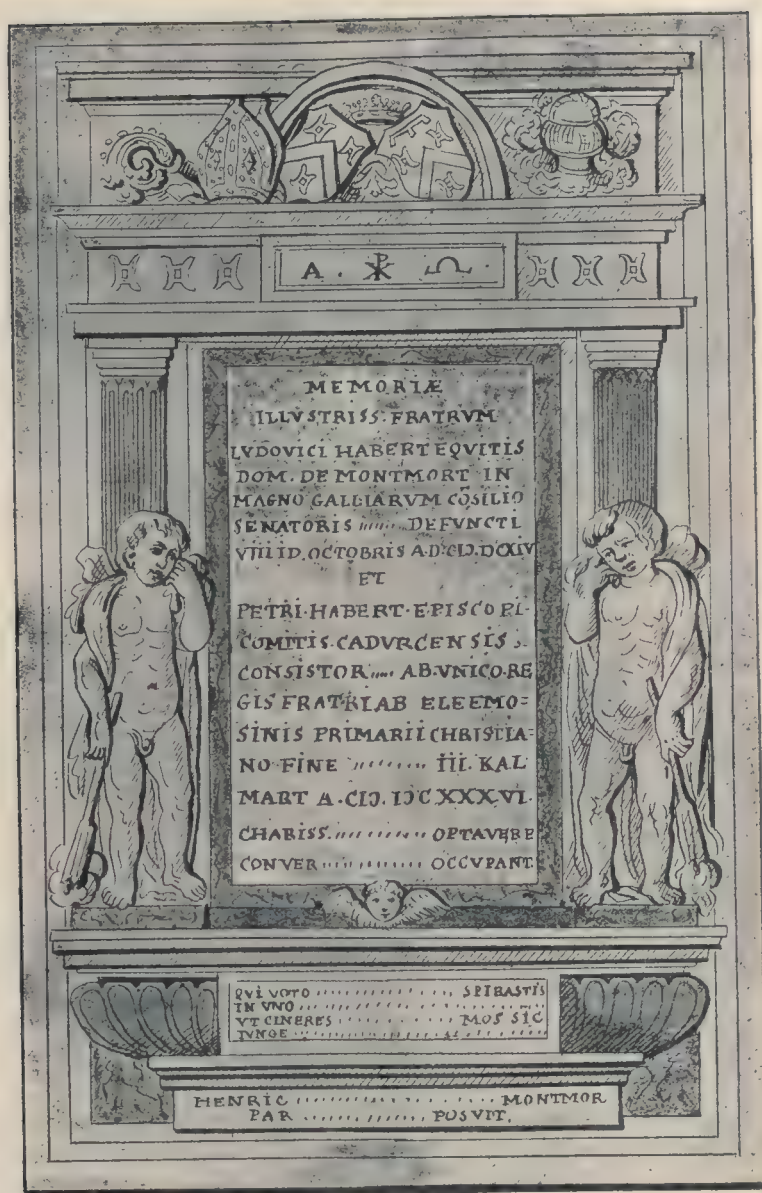 A . ☧ Ω .
MEMORIÆ
ILLVSTRISS. FRATRVM
LVDOVICI HABERT EQVITIS
DOM. DE MONTMORT IN
MAGNO GALLIARVM COSILIO
SENATORIS ...... DEFVNCTI
VIII ID. OCTOBRIS A.D. CIↃ.DCXIV
ET
PETRI·HABERT·EPISCOPI·
COMITIS·CADVRCENSIS
CONSISTOR ..... AB·VNICO·RE
GIS FRATRI AB ELEEMO=
SINIS PRIMARII CHRISTIA=
NO·FINE ......... III. KAL
MART A·CIↃ. IↃCXXXVI·
CHARISS. .......... OPTAVERE
CONVER ............ OCCVPANT
QVI VOTO ............... SPIRASTIS
IN VNO ....................
VT CINERES ............ MOS SIC
IVNGE ....................
HENRIC .................... MONTMOR
PAR .............. POSVIT.